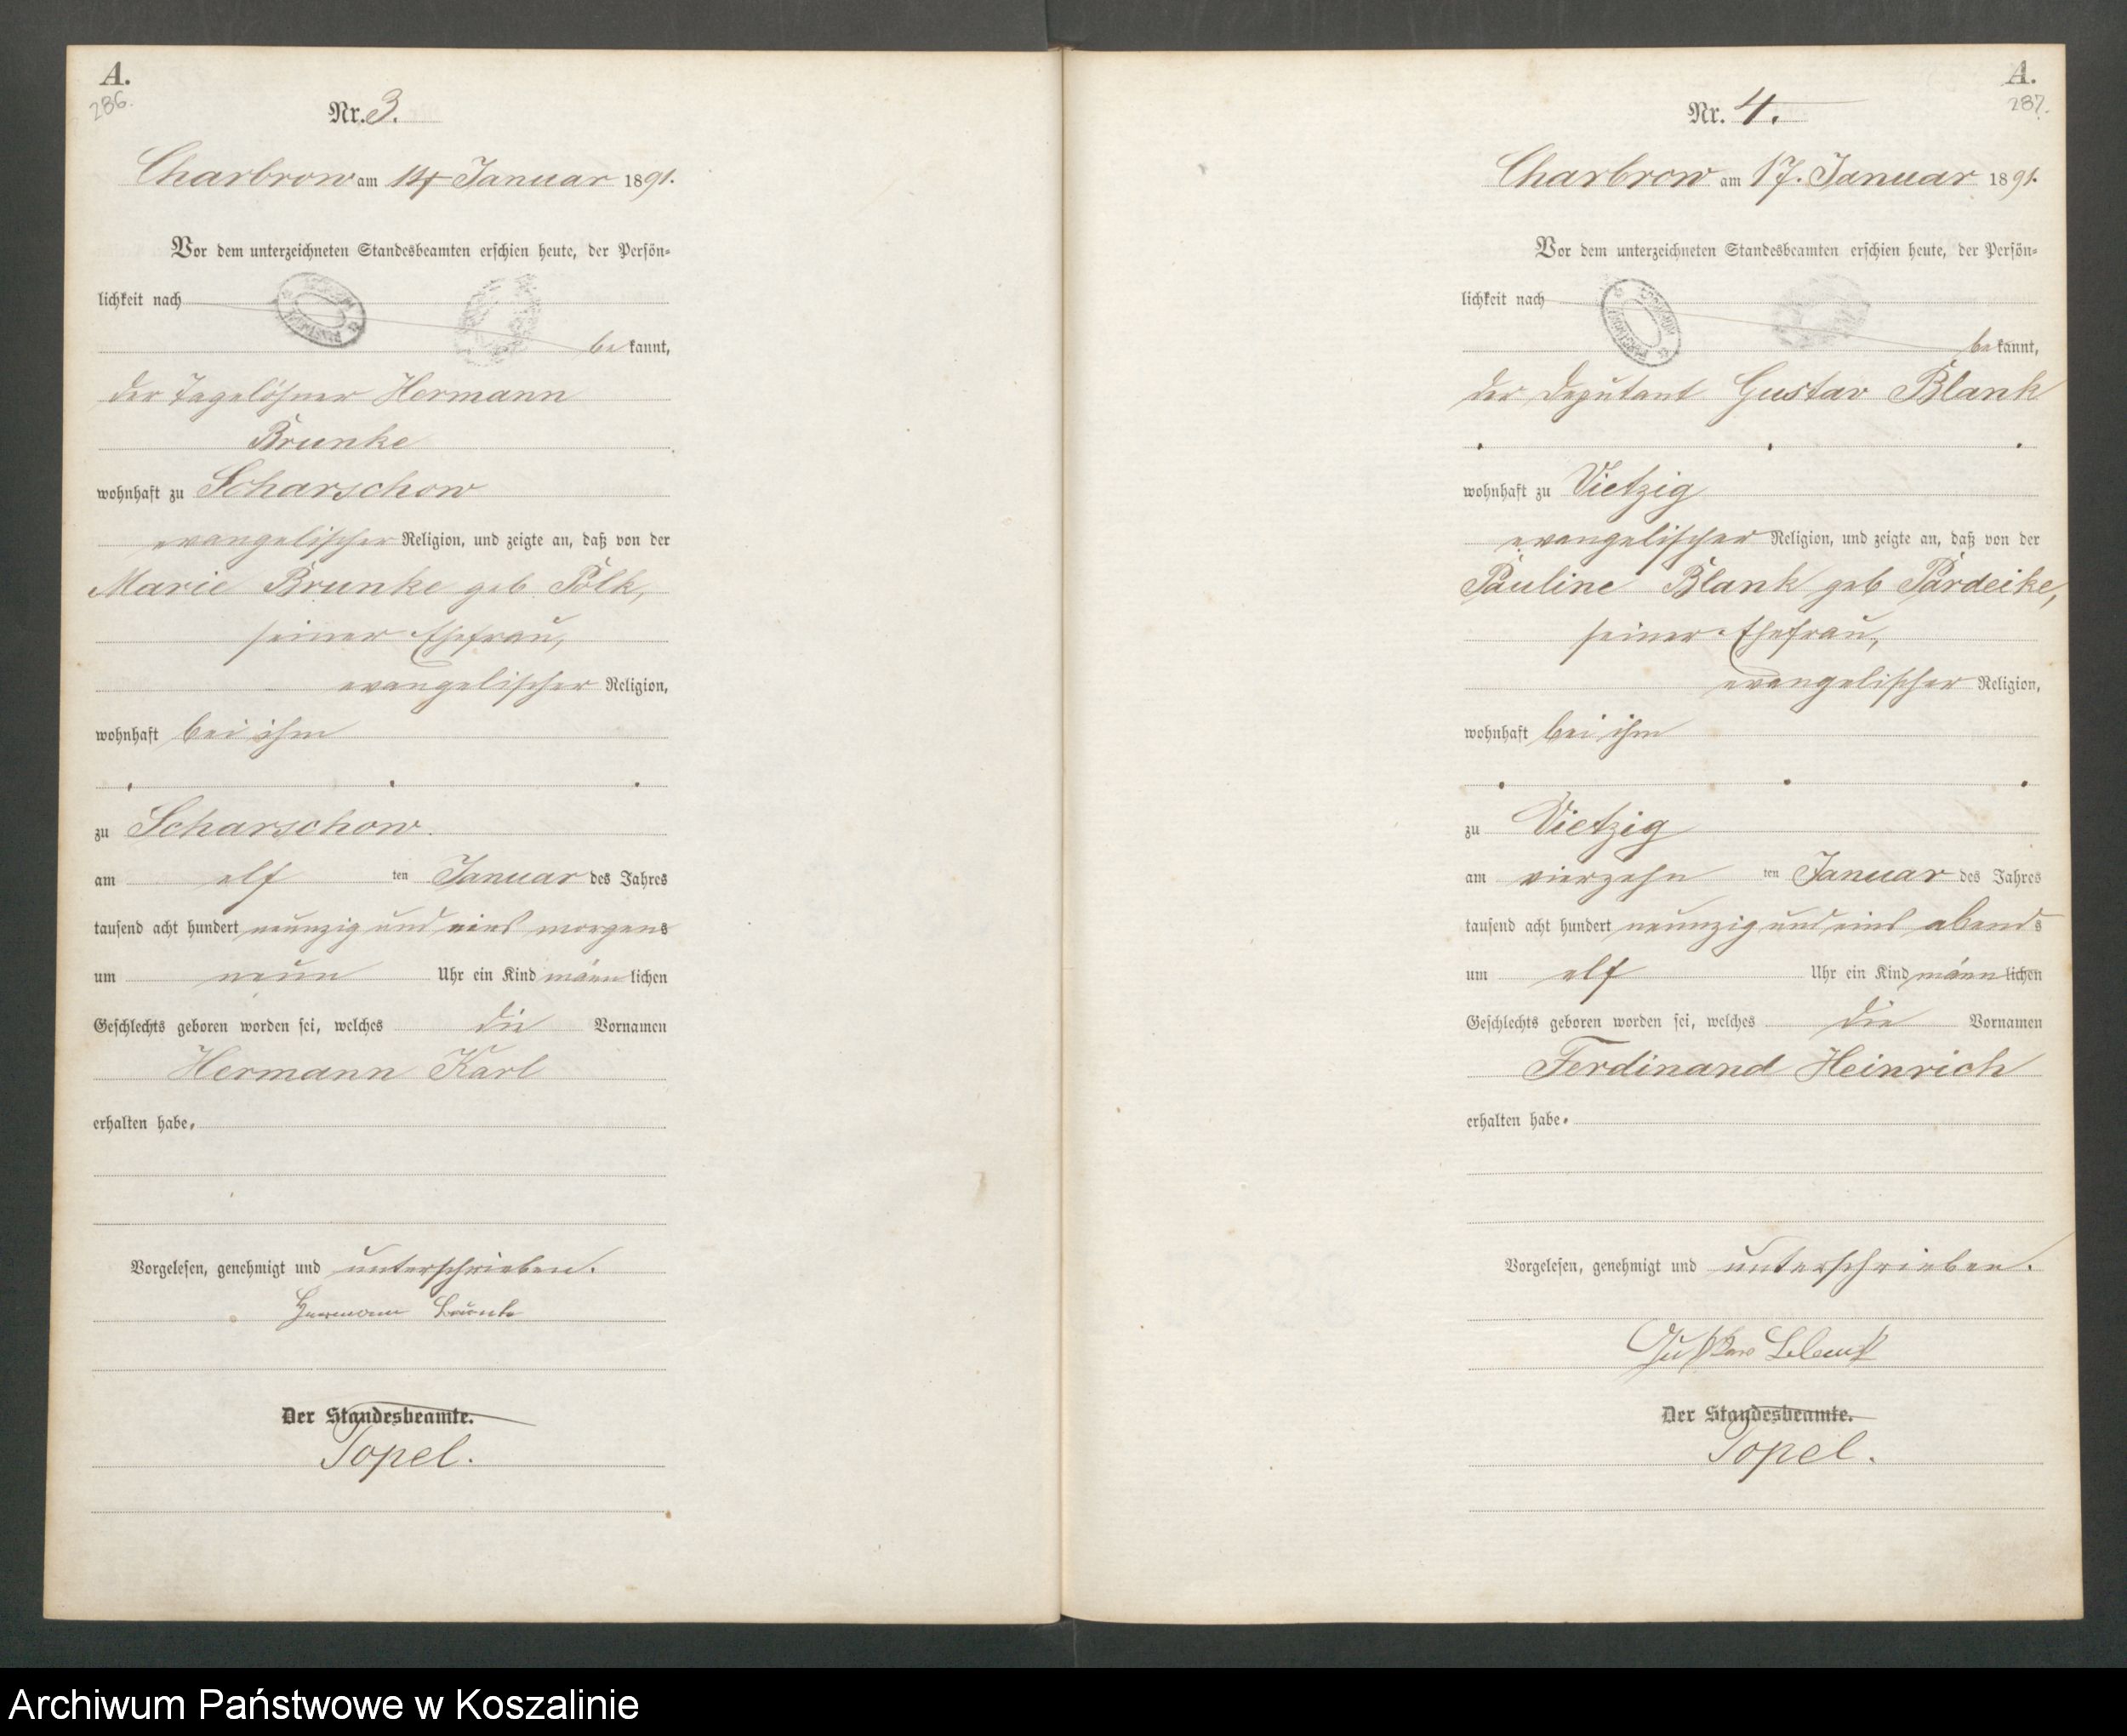 A.
286.
Nr. 3.
Charbrow am 14 Januar 1891.
Vor dem unterzeichneten Standesbeamten erschien heute, der Persön-
lichkeit nach
be kannt,
der Tagelöhner Hermann
Brunke
wohnhaft zu Scharschow
evangelischer Religion, und zeigte an, daß von der
Marie Brunke geb Polk,
seiner Ehefrau,
evangelischer Religion,
wohnhaft bei ihm
zu Scharschow.
am elf ten Januar des Jahres
tausend acht hundert neunzig und eins morgens
um neun Uhr ein Kind männ lichen
Geschlechts geboren worden sei, welches die Vornamen
Hermann Karl
erhalten habe.
Vorgelesen, genehmigt und unterschrieben.
Hermann Brunke
Der Standesbeamte.
Topel.
A.
287.
Nr. 4.
Charbrow am 17. Januar 1891.
Vor dem unterzeichneten Standesbeamten erschien heute, der Persön-
lichkeit nach
be kannt,
der Deputant Gustav Blank
wohnhaft zu Vietzig
evangelischer Religion, und zeigte an, daß von der
Pauline Blank geb Pardeike,
seiner Ehefrau,
evangelischer Religion,
wohnhaft bei ihm
zu Vietzig
am vierzehn ten Januar des Jahres
tausend acht hundert neunzig und eins abends
um elf Uhr ein Kind männ lichen
Geschlechts geboren worden sei, welches die Vornamen
Ferdinand Heinrich
erhalten habe.
Vorgelesen, genehmigt und unterschrieben.
Gustav Blank
Der Standesbeamte.
Topel.
Archiwum Państwowe w Koszalinie